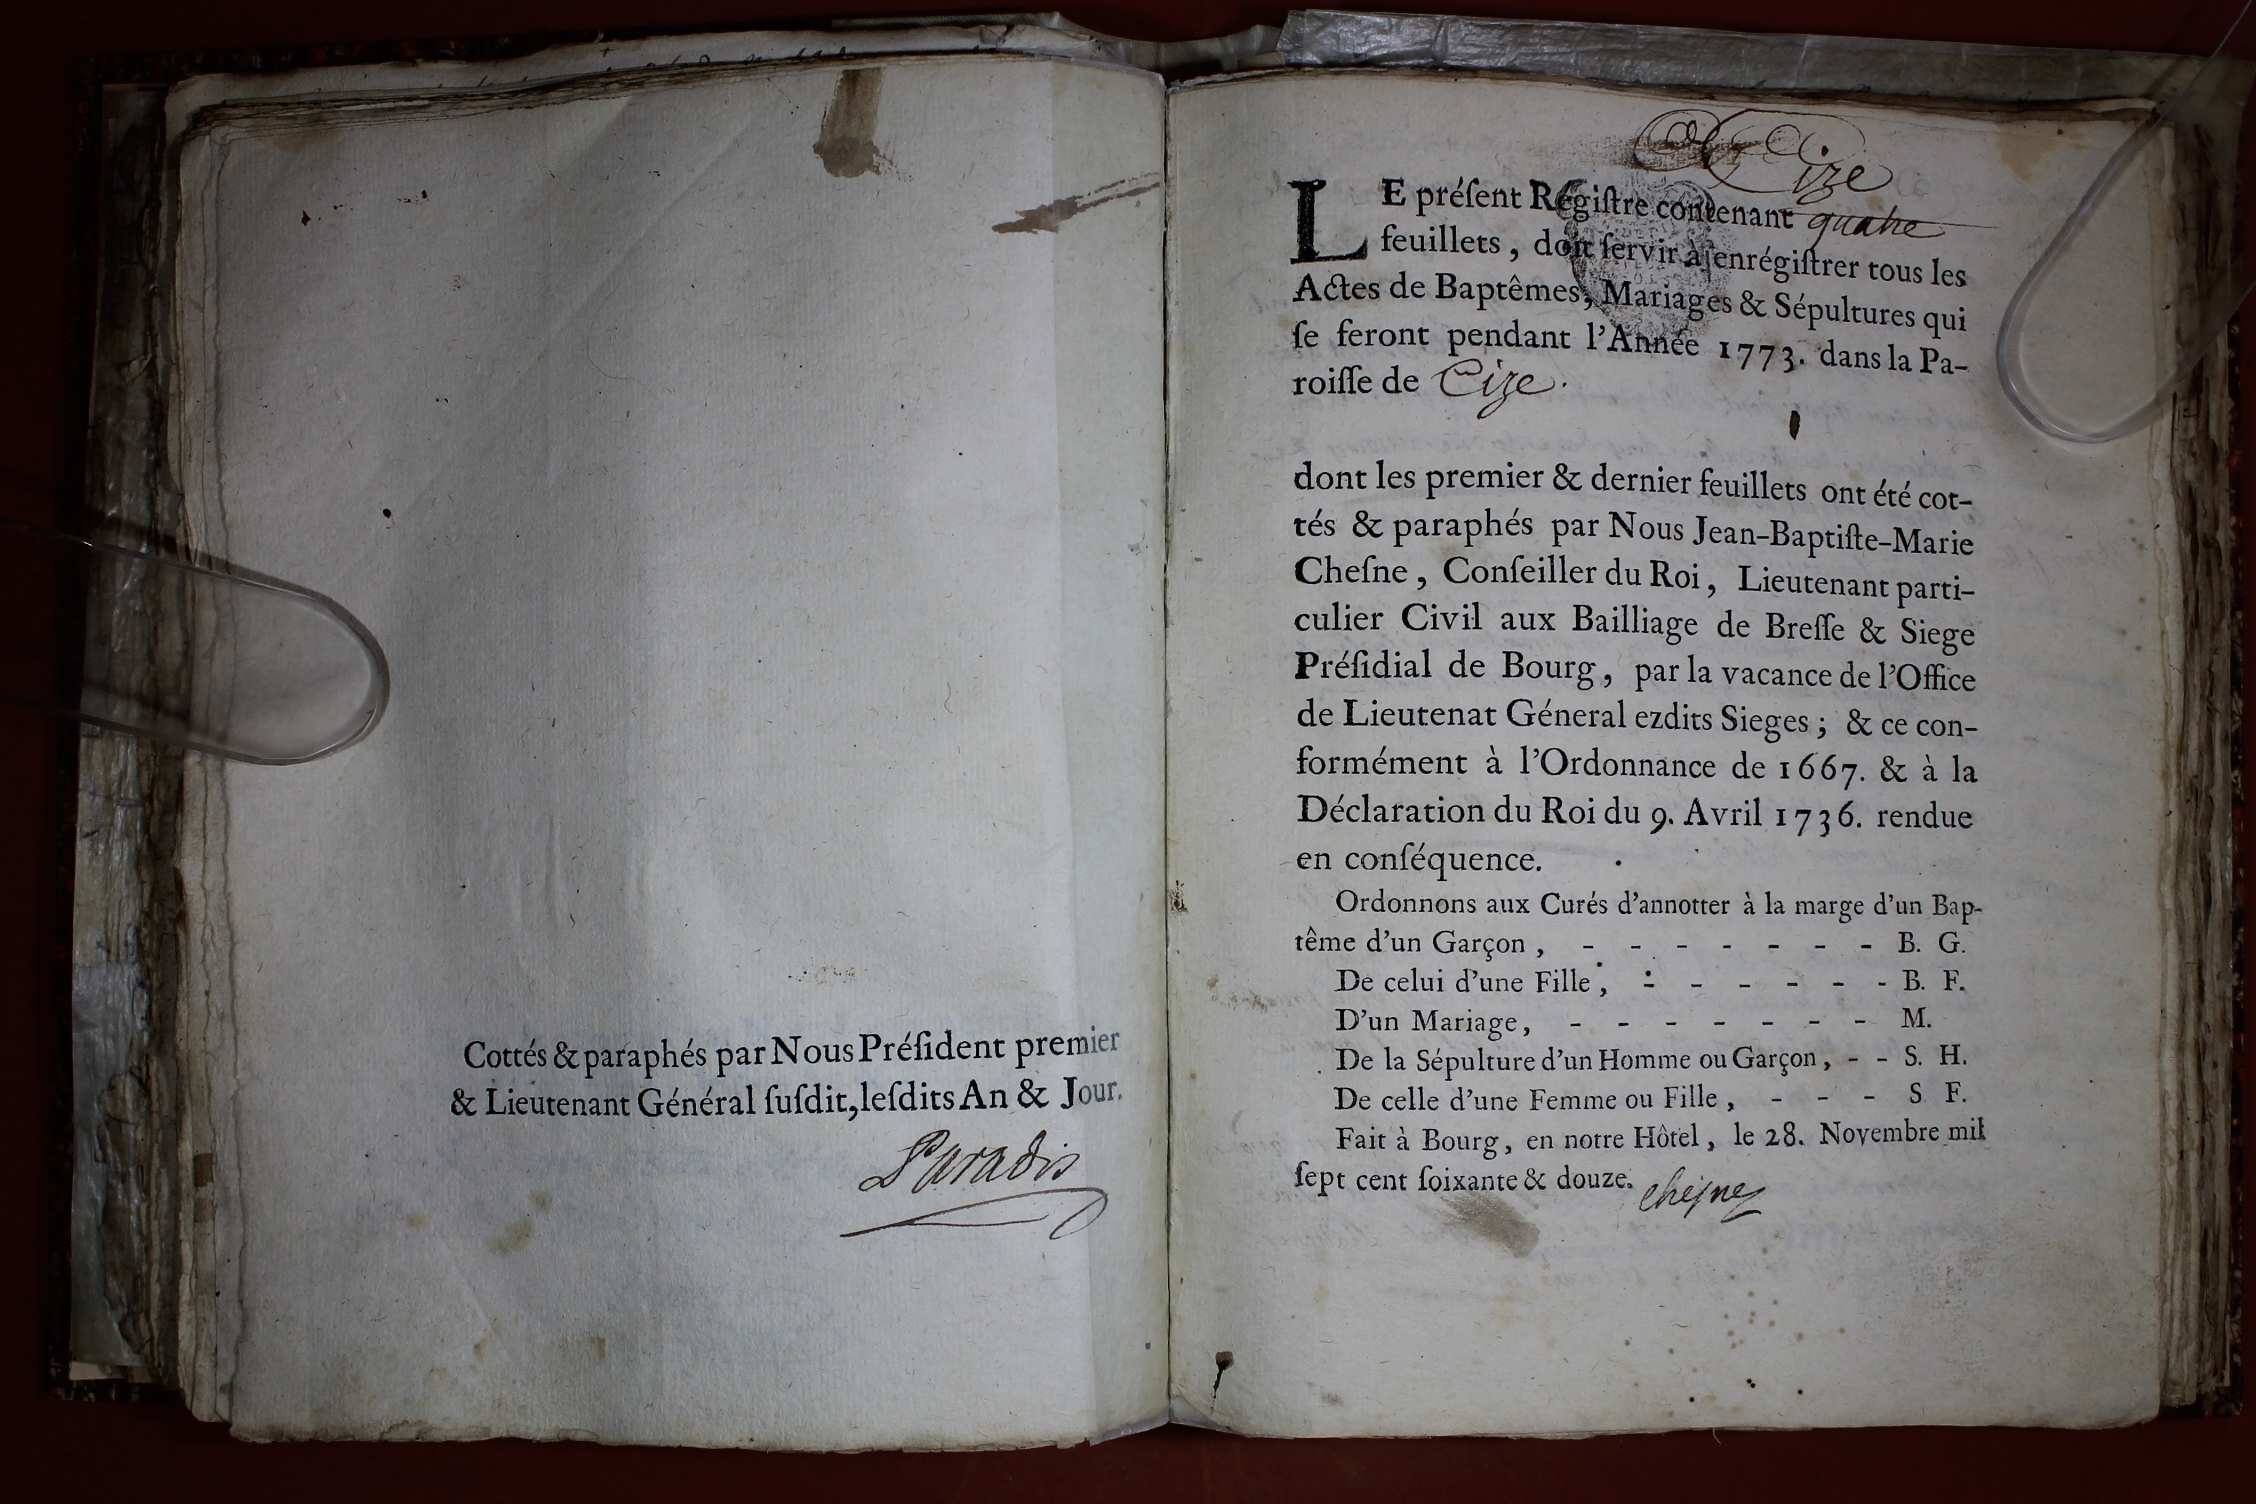 Cottés & paraphés par Nous Préſident premier
& Lieutenant Général ſuſdit, leſdits An & Jour.
Paradis
Cize
LE préſent Régiſtre contenant quatre
feuillets, doit ſervir à enrégiſtrer tous les
Actes de Baptêmes, Mariages & Sépultures qui
ſe feront pendant l'Année 1773. dans la Pa-
roiſſe de Cize.
dont les premier & dernier feuillets ont été cot-
tés & paraphés par Nous Jean-Baptiſte-Marie
Cheſne, Conſeiller du Roi, Lieutenant parti-
culier Civil aux Bailliage de Breſſe & Siege
Préſidial de Bourg, par la vacance de l'Office
de Lieutenat Géneral ezdits Sieges; & ce con-
formément à l'Ordonnance de 1667. & à la
Déclaration du Roi du 9. Avril 1736. rendue
en conſéquence.
Ordonnons aux Curés d'annotter à la marge d'un Bap-
tême d'un Garçon, - - - - - - - B. G.
De celui d'une Fille, - - - - - - B. F.
D'un Mariage, - - - - - - - M.
De la Sépulture d'un Homme ou Garçon, - - S. H.
De celle d'une Femme ou Fille, - - - S F.
Fait à Bourg, en notre Hôtel, le 28. Novembre mil
ſept cent ſoixante & douze. cheſne